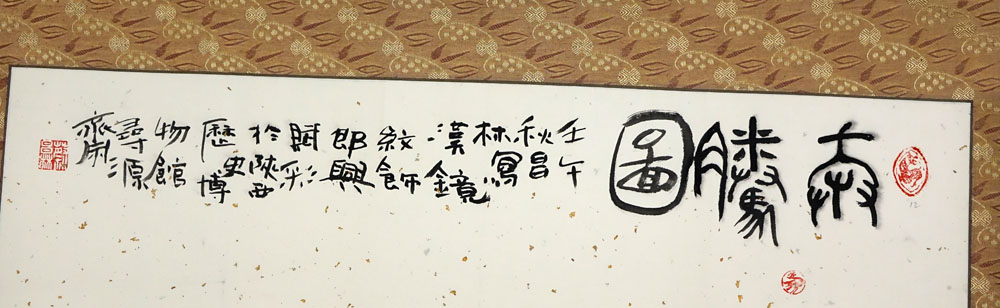 奔騰圖
壬午
秋昌
林寫
漢鏡
紋飾
即興
賦彩
於陝西
歷史博
物館
尋源
齋